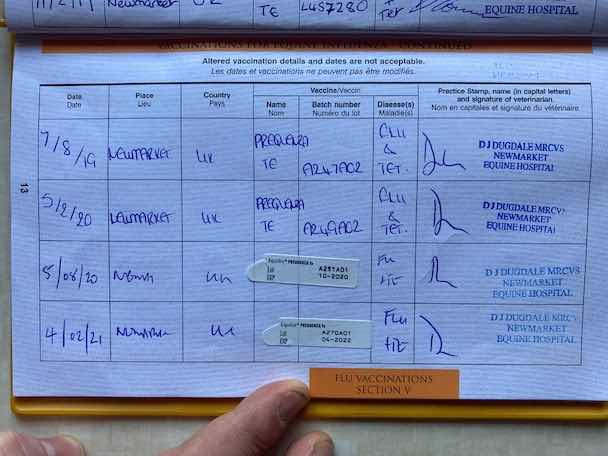 Newmarket UK TE L457280 + Tet EQUINE HOSPITAL
VACCINATIONS FOR EQUINE INFLUENZA - CONTINUED
Altered vaccination details and dates are not acceptable.
Les dates et vaccinations ne peuvent pas être modifiés.
Date
Date
Place
Lieu
Country
Pays
Vaccine/Vaccin
Name
Nom
Batch number
Numéro du lot
Disease(s)
Maladie(s)
Practice Stamp, name (in capital letters)
and signature of veterinarian.
Nom en capitales et signature du vétérinaire
7/8/19 NEWMARKET UK
PREQUENZA
TE A247A02
FLU
&
TET.
D J DUGDALE MRCVS
NEWMARKET
EQUINE HOSPITAL
5/2/20 NEWMARKET UK
PREQUENZA
TE A249A02
FLU
&
TET.
D J DUGDALE MRCVS
NEWMARKET
EQUINE HOSPITAL
5/08/20
Equilis® PREQUENZA Te
Lot A251A01
EXP 10-2020
D J DUGDALE MRCVS
NEWMARKET
EQUINE HOSPITAL
4/02/21
Equilis® PREQUENZA Te
Lot A270A01
EXP 04-2022
Flu
D J DUGDALE MRCV
NEWMARKET
EQUINE HOSPITAL
13
FLU VACCINATIONS
SECTION V